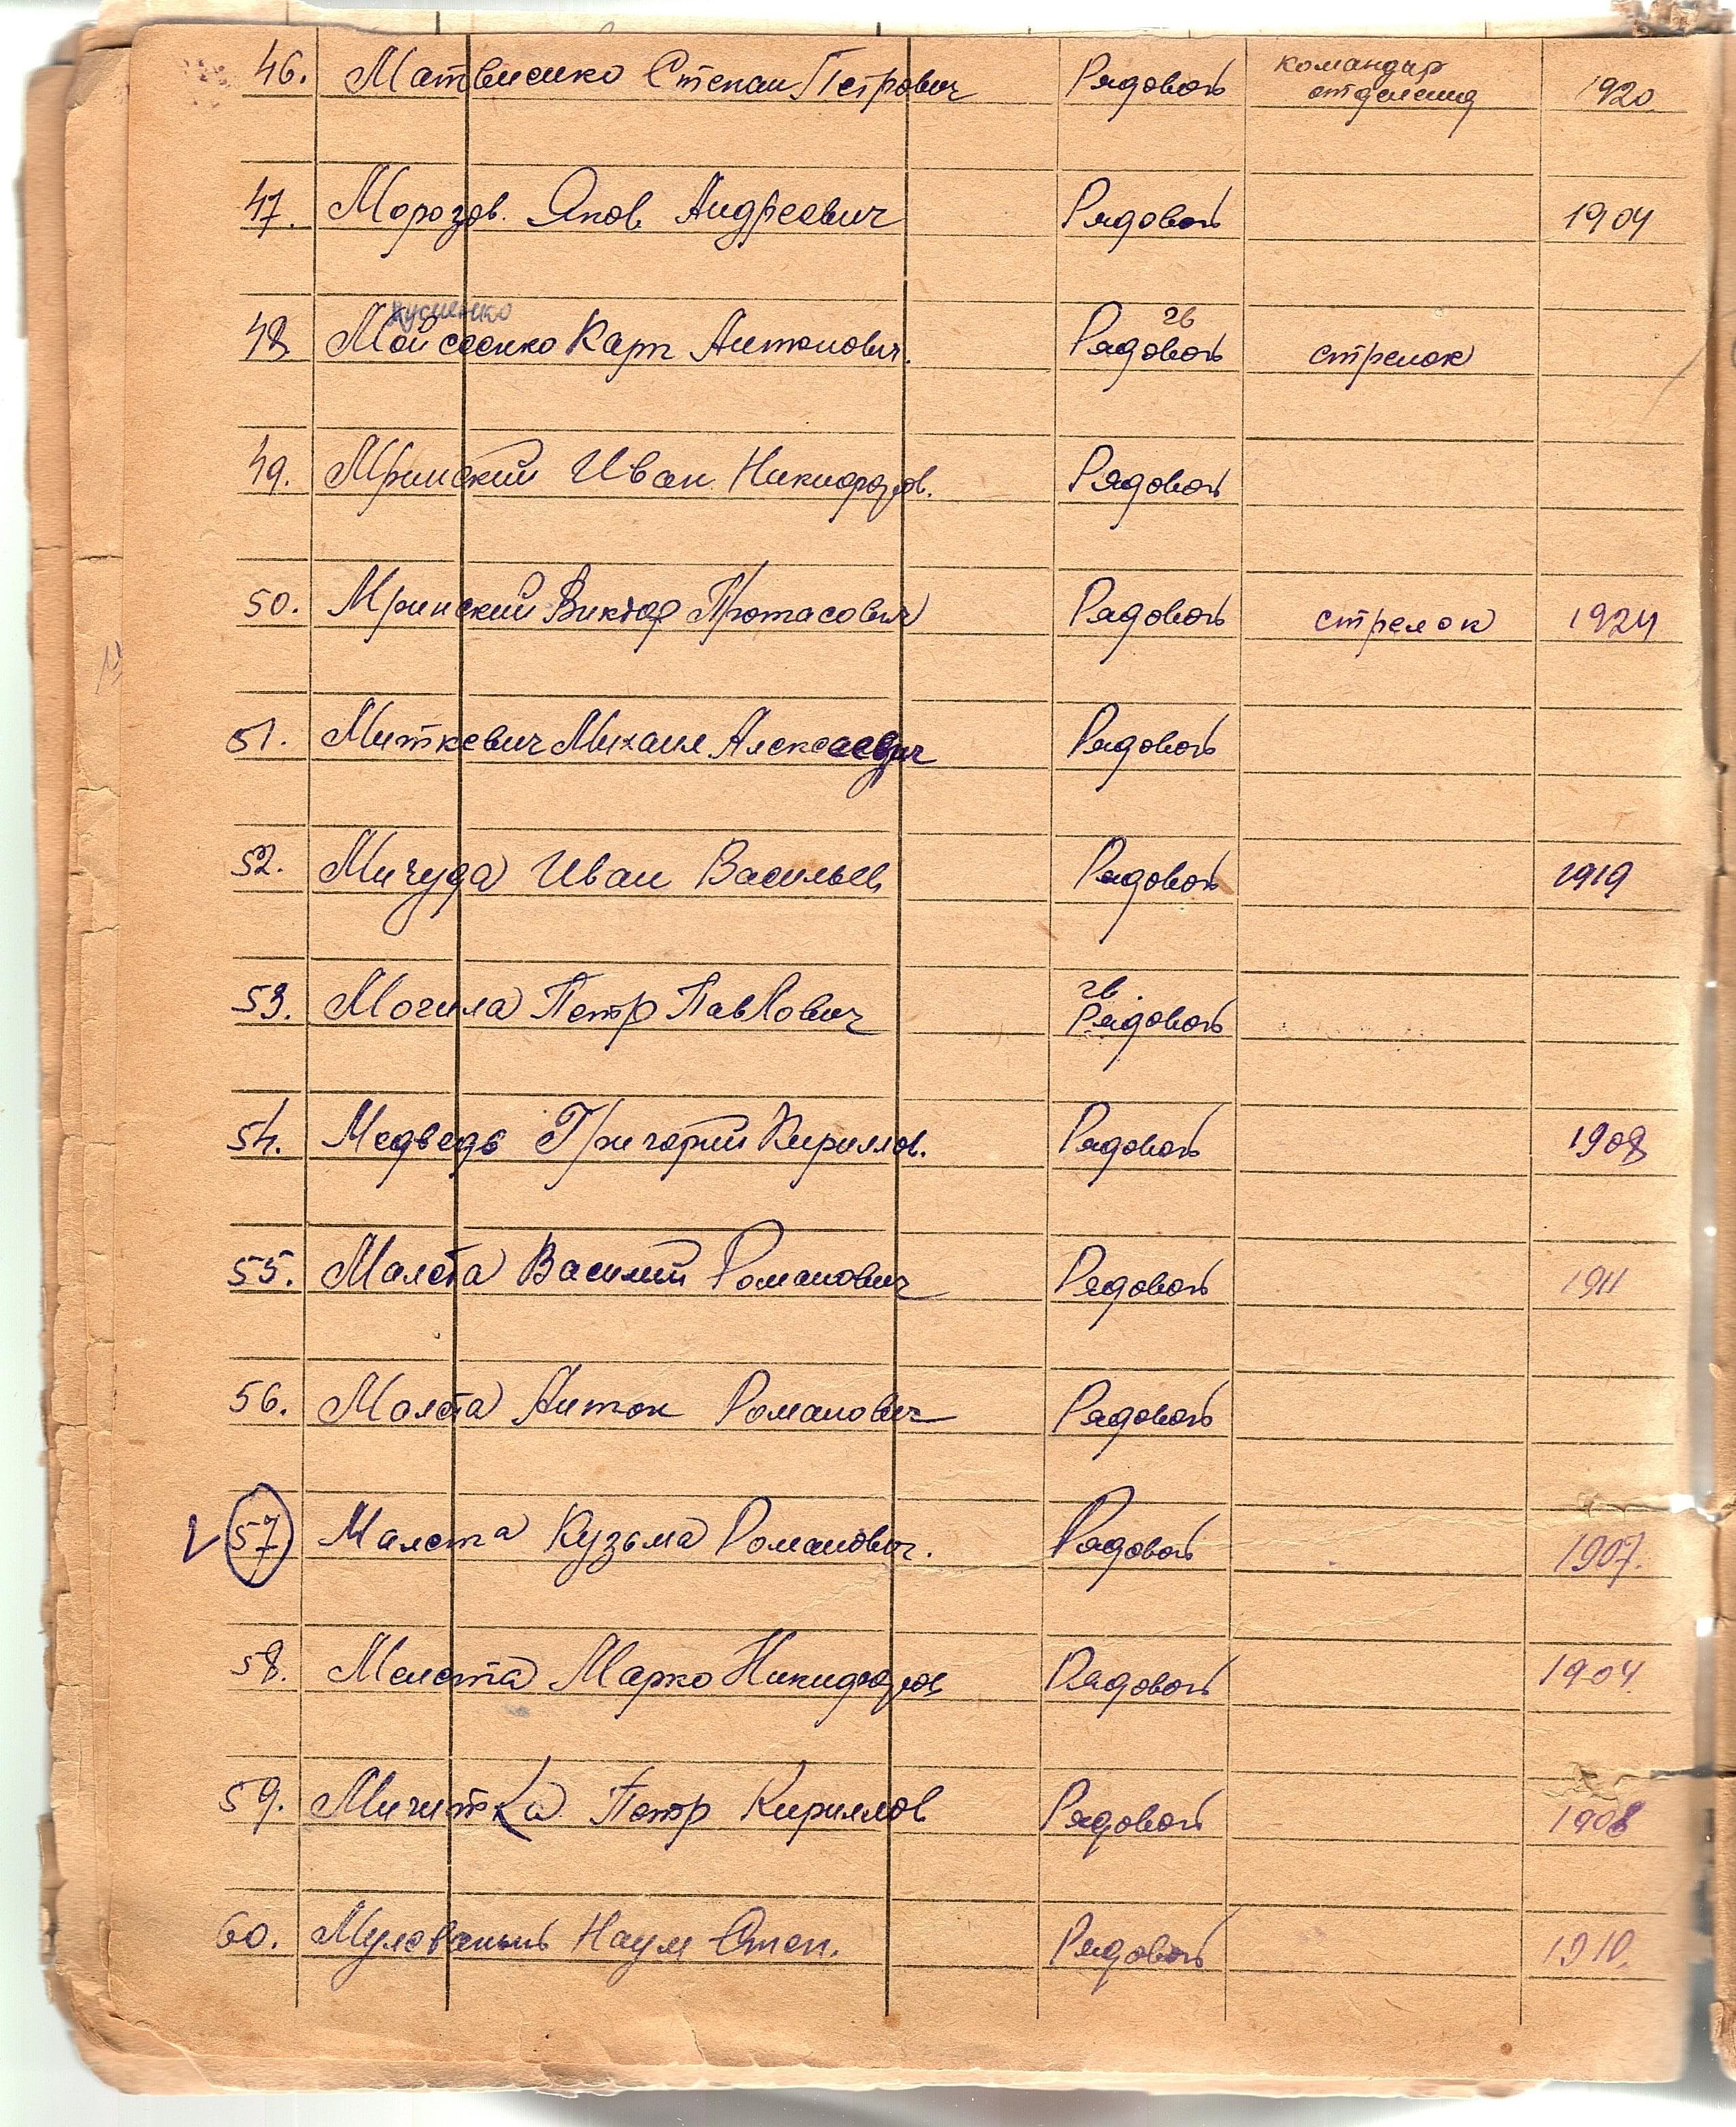 46. Матвиенко Степан Петрович Рядовой командир отделения 1920
47. Морозов. Яков Андреевич Рядовой 1904
48 Мойсеенко Карп Антонович. гв Рядовой стрелок
49. Мринский Иван Никифоров. Рядовой
50. Мринский Виктор Протасович Рядовой стрелок 1924
51. Миткевич Михаил Алексеевич Рядовой
52. Мичуда Иван Васильев Рядовой 1919
53. Могила Петр Павлович гв. Рядовой
54. Медведь Григорий Кириллов. Рядовой 1908
55. Малета Василий Романович Рядовой 1911
56. Малета Антон Романович Рядовой
57 Малета Кузьма Романович. Рядовой 1907.
58. Мелета Марко Никифоров Рядовой 1904
59. Мичитка Петр Кириллов Рядовой 1908
60. Мулеваный Наум Степ. Рядовой 1910.